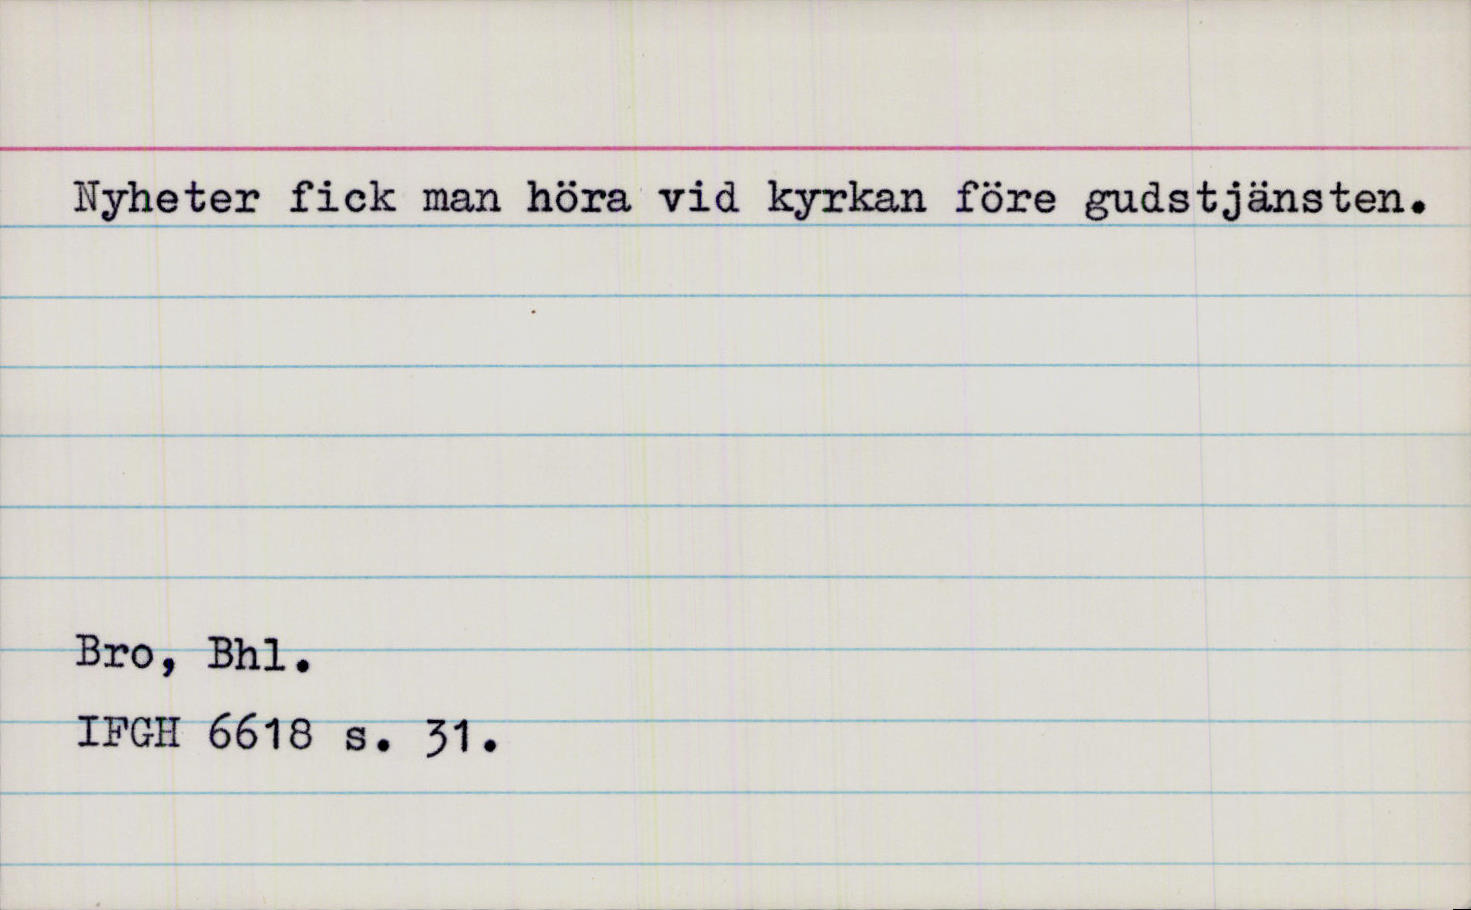 Nyheter fick man höra vid kyrkan före gudstjänsten.
Bro, Bhl.
IFGH 6618 s. 31.